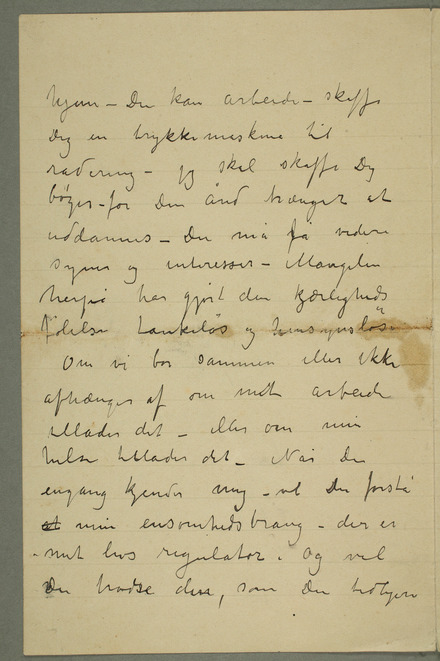 hjem – Du kan arbeide – skaffe
Dig en trykkemaskine til
radering – jeg skal skaffe Dig
bøger – for Din Ånd trænger at
uddannes – Du må få videre
syner og interesser – Mangelen
herpå har gjort din kjærligheds
følelse tankeløs og hensynsløs
Om vi bor sammen eller ikke
afhænger af om mit arbeide
tillader det – eller om min
helse tillader det – Når Du
engang kjender mig – vil Du forstå
at min ensomhedstrang – der er
mit livs regulator. Og vil
Du bryde den, som Du tidligere